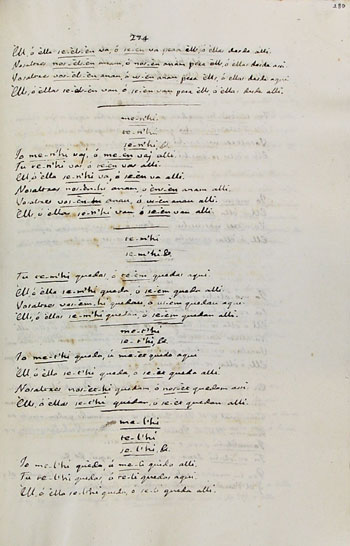 180
274
Ell, ó ella se-él-en va, ó se-en va pera ell, ó ellas desde alli.
Nosatres nos-él-en anam, ó nos-en anam pera ell, ó ellas desde assi
Vosatres vos-él-en anau, ó us-en anau pera ell, ó ellas desde aqui
Ells, ó ellas se-él-en van ó se-en van pera ell, ó ellas desde alli.
me-n'hi
te-n'hi
se-n'hi, &c.
Io me-n'hi vaj, ó me-en vaj alli.
Tu te-n'hi vas, ó te-en vas alli.
Ell, ó ella se-n'hi va, ó se-en va alli.
Nosatres anam, ó anam alli.
Vosatres anau, ó us-en anau alli.
Ells, ó ellas se-n'hi van ó se-en van alli.
te-m'hi
se-m'hi &c.
Tu te-m'hi quedas, ó te-em quedas aqui.
Ell, ó ella se-m'hi queda, ó se-em queda alli.
Vosatres vos-em-hi quedau, ó us-em quedau aqui.
Ells, ó ellas se-m'hi quedan, ó se-em quedan alli.
me-t'hi
se-t'hi, &c.
Io me-t'hi quedo, ó me-et quedo aqui
Ell, ó ella se-t'hi queda, ó se-et queda alli.
Nosatres nos-et-hi quedam ó nos-et quedam assi
Ells, ó ellas se-t'hi quedan, ó se-et quedan alli.
me-l'hi
te-l'hi
se-l'hi, &c.
Io me-l'hi quedo, ó me-li quedo alli.
Tu te-l'hi quedas, ó te-li quedas alli.
Ell, ó ella se-l'hi queda, ó se-li queda alli.